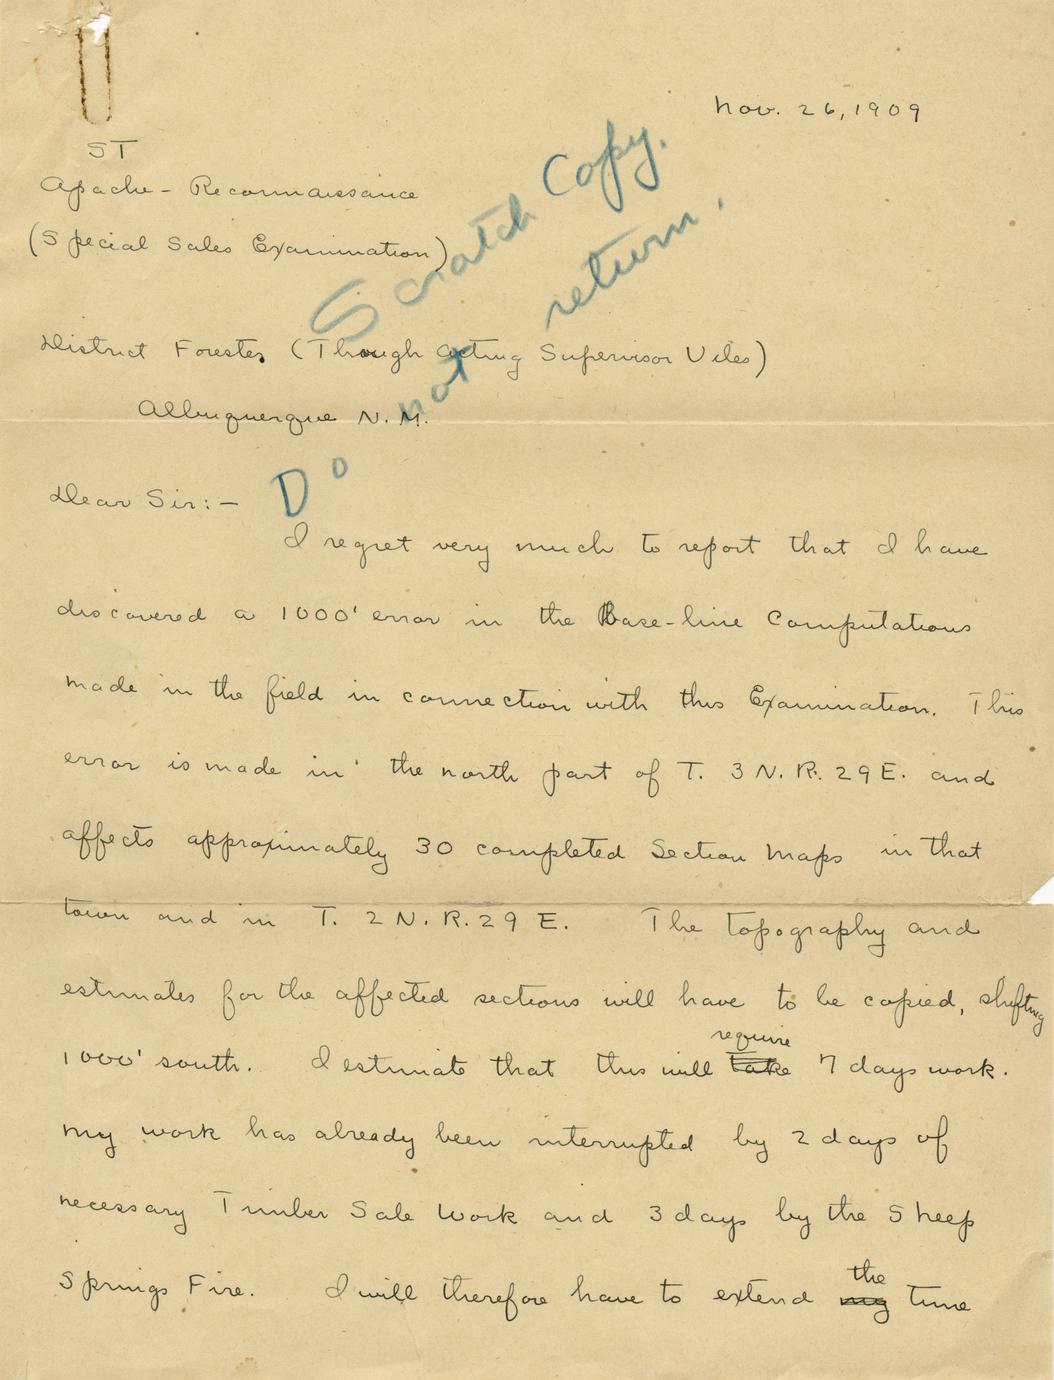 Nov. 26, 1909
ST
Apache - Reconnaissance
(Special Sales Examination)
Scratch Copy.
Do not return.
District Forester (Through Acting Supervisor Viles)
Albuquerque N. M.
Dear Sir:-
I regret very much to report that I have
discovered a 1000' error in the Base-line Computations
made in the field in connection with this Examination. This
error is made in the north part of T. 3 N. R. 29 E. and
affects approximately 30 completed Section Maps in that
town and in T. 2 N. R. 29 E. The topography and
estimates for the affected sections will have to be copied, shifting
1000' south. I estimate that this will take require 7 days work.
My work has already been interrupted by 2 days of
necessary Timber Sale Work and 3 days by the Sheep
Springs Fire. I will therefore have to extend my the time